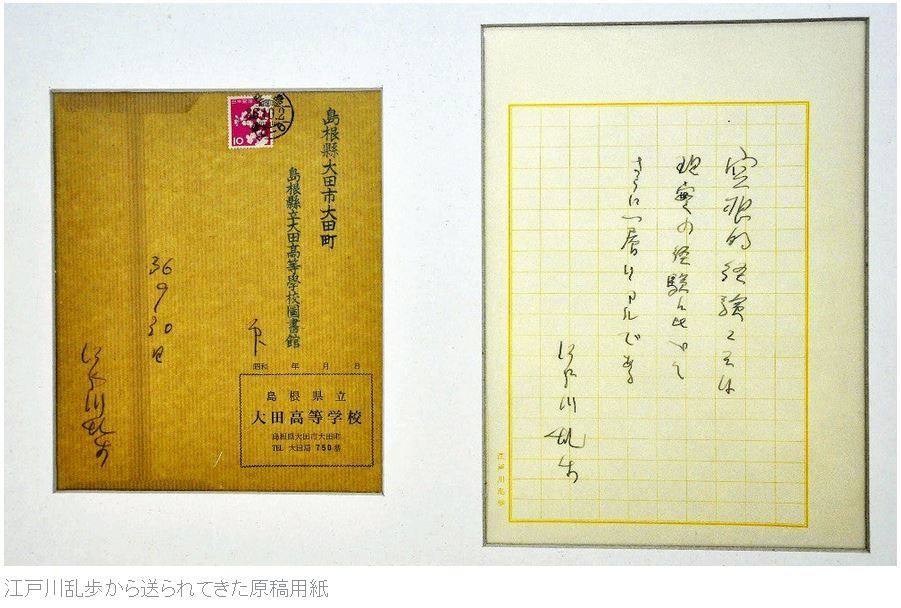 日本郵便
10
島根縣大田市大田町
島根縣立大田高等學校圖書館
行
昭和　年　月　日
島根県立
大田高等学校
島根県大田市大田町
TEL 大田局 750番
36 9 30日
江戸川乱歩
空想的経験こそは
現實の経験に比べて
さらに一層リアルである
江戸川乱歩
江戸川乱歩から送られてきた原稿用紙